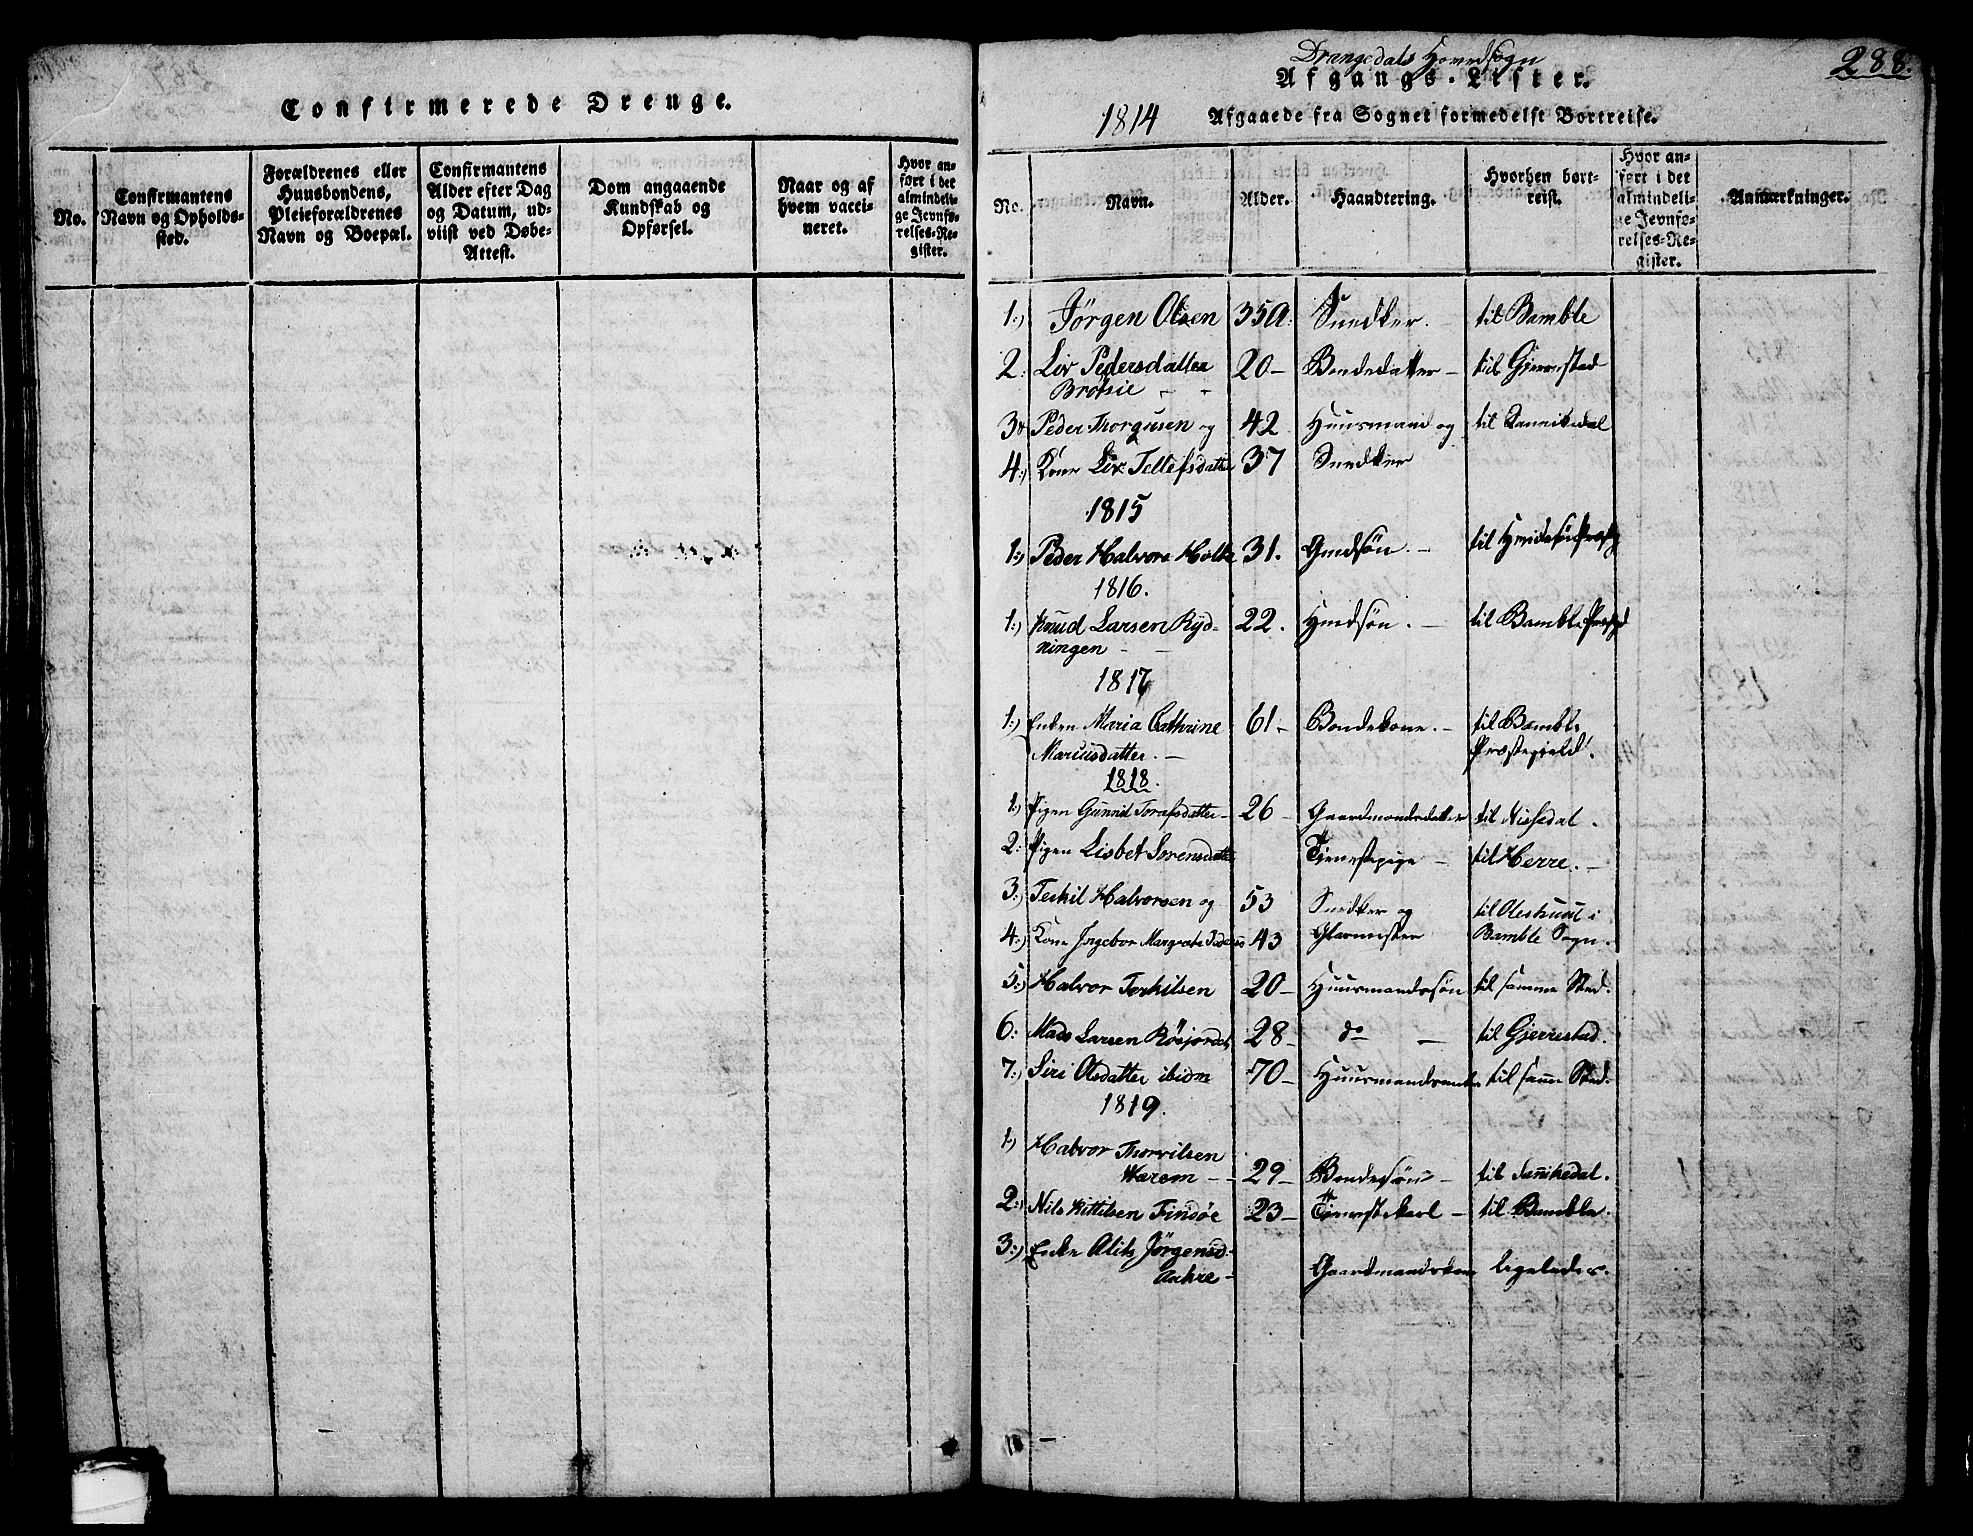 Confirmerede Drenge.
No.
Confirmantens
Navn og Opholds-
sted.
Forældrenes eller
Huusbondens,
Pleieforældrenes
Navn og Boepæl.
Confirmantens
Alder efter Dag
og Datum, ud-
viist ved Døbe-
Attest.
Dom angaaende
Kundskab og
Opførsel.
Naar og af
hvem vacci-
neret.
Hvor an-
ført i det
almindeli-
ge Jevnfø-
relses-Re-
gister.
288.
Drangedals Hovedsogn
Afgangs-Lister.
1814 Afgaaede fra Sognet formedelst Bortreise.
No.
Navn.
Alder.
Haandtering.
Hvorhen bort-
reist.
Hvor an-
ført i det
almindeli-
ge Jevnfø-
relses-Re-
gister.
Anmærkninger.
1:) Jørgen Olsen 35 A: Snedker. - til Bamble
2: Liv Pedersdatter 20- Bondedatter - til Gjerrestad
Brøtsie - -
3 Peder Thorgusen og 42 Huusmand og til Sannikedal
4:) Kone Liv Tellefsdatter 37 Snedker
1815
1:) Peder Halvors Holte 31. -
1816.
1:) Knud Larsen Ryd- 22. - til Bamble
ningen - -
1817
1:) Enken Maria Cathrine 61- Bondekone. - til Bamble
Mariusdatter. - Præstegield.
1818.
1:) Pigen Gunnild Torafsdatter - 26 Gaardmandsdatter til Nissedal.
2: Pigen Lisbet Sorensdatter Tienestepige - til Herre. -
3:) Terkil Halvorsen og 53 Snedker og til i
4:) Kone Ingebor Margrete 43 Glarmester Bamble Sogn.
5:) Halvor Terkilsen 20- Huusmandssøn til samme Sted.
6: Mads Larsen Røsjordet 28- do - til Gjerrestad.
7:) Siri Olsdatter ibidm 70- til samme Sted.
1819.
1:) Halvor Thorvilsen
Warem - - 29- Bondesøn - til Sannikedal.
2:) Nils Kittilsen Findøe 23- Tienestekarl - til Bamble.
3:) Enke Jørgensd.
Aakre - Gaardmandskone ligeledes.